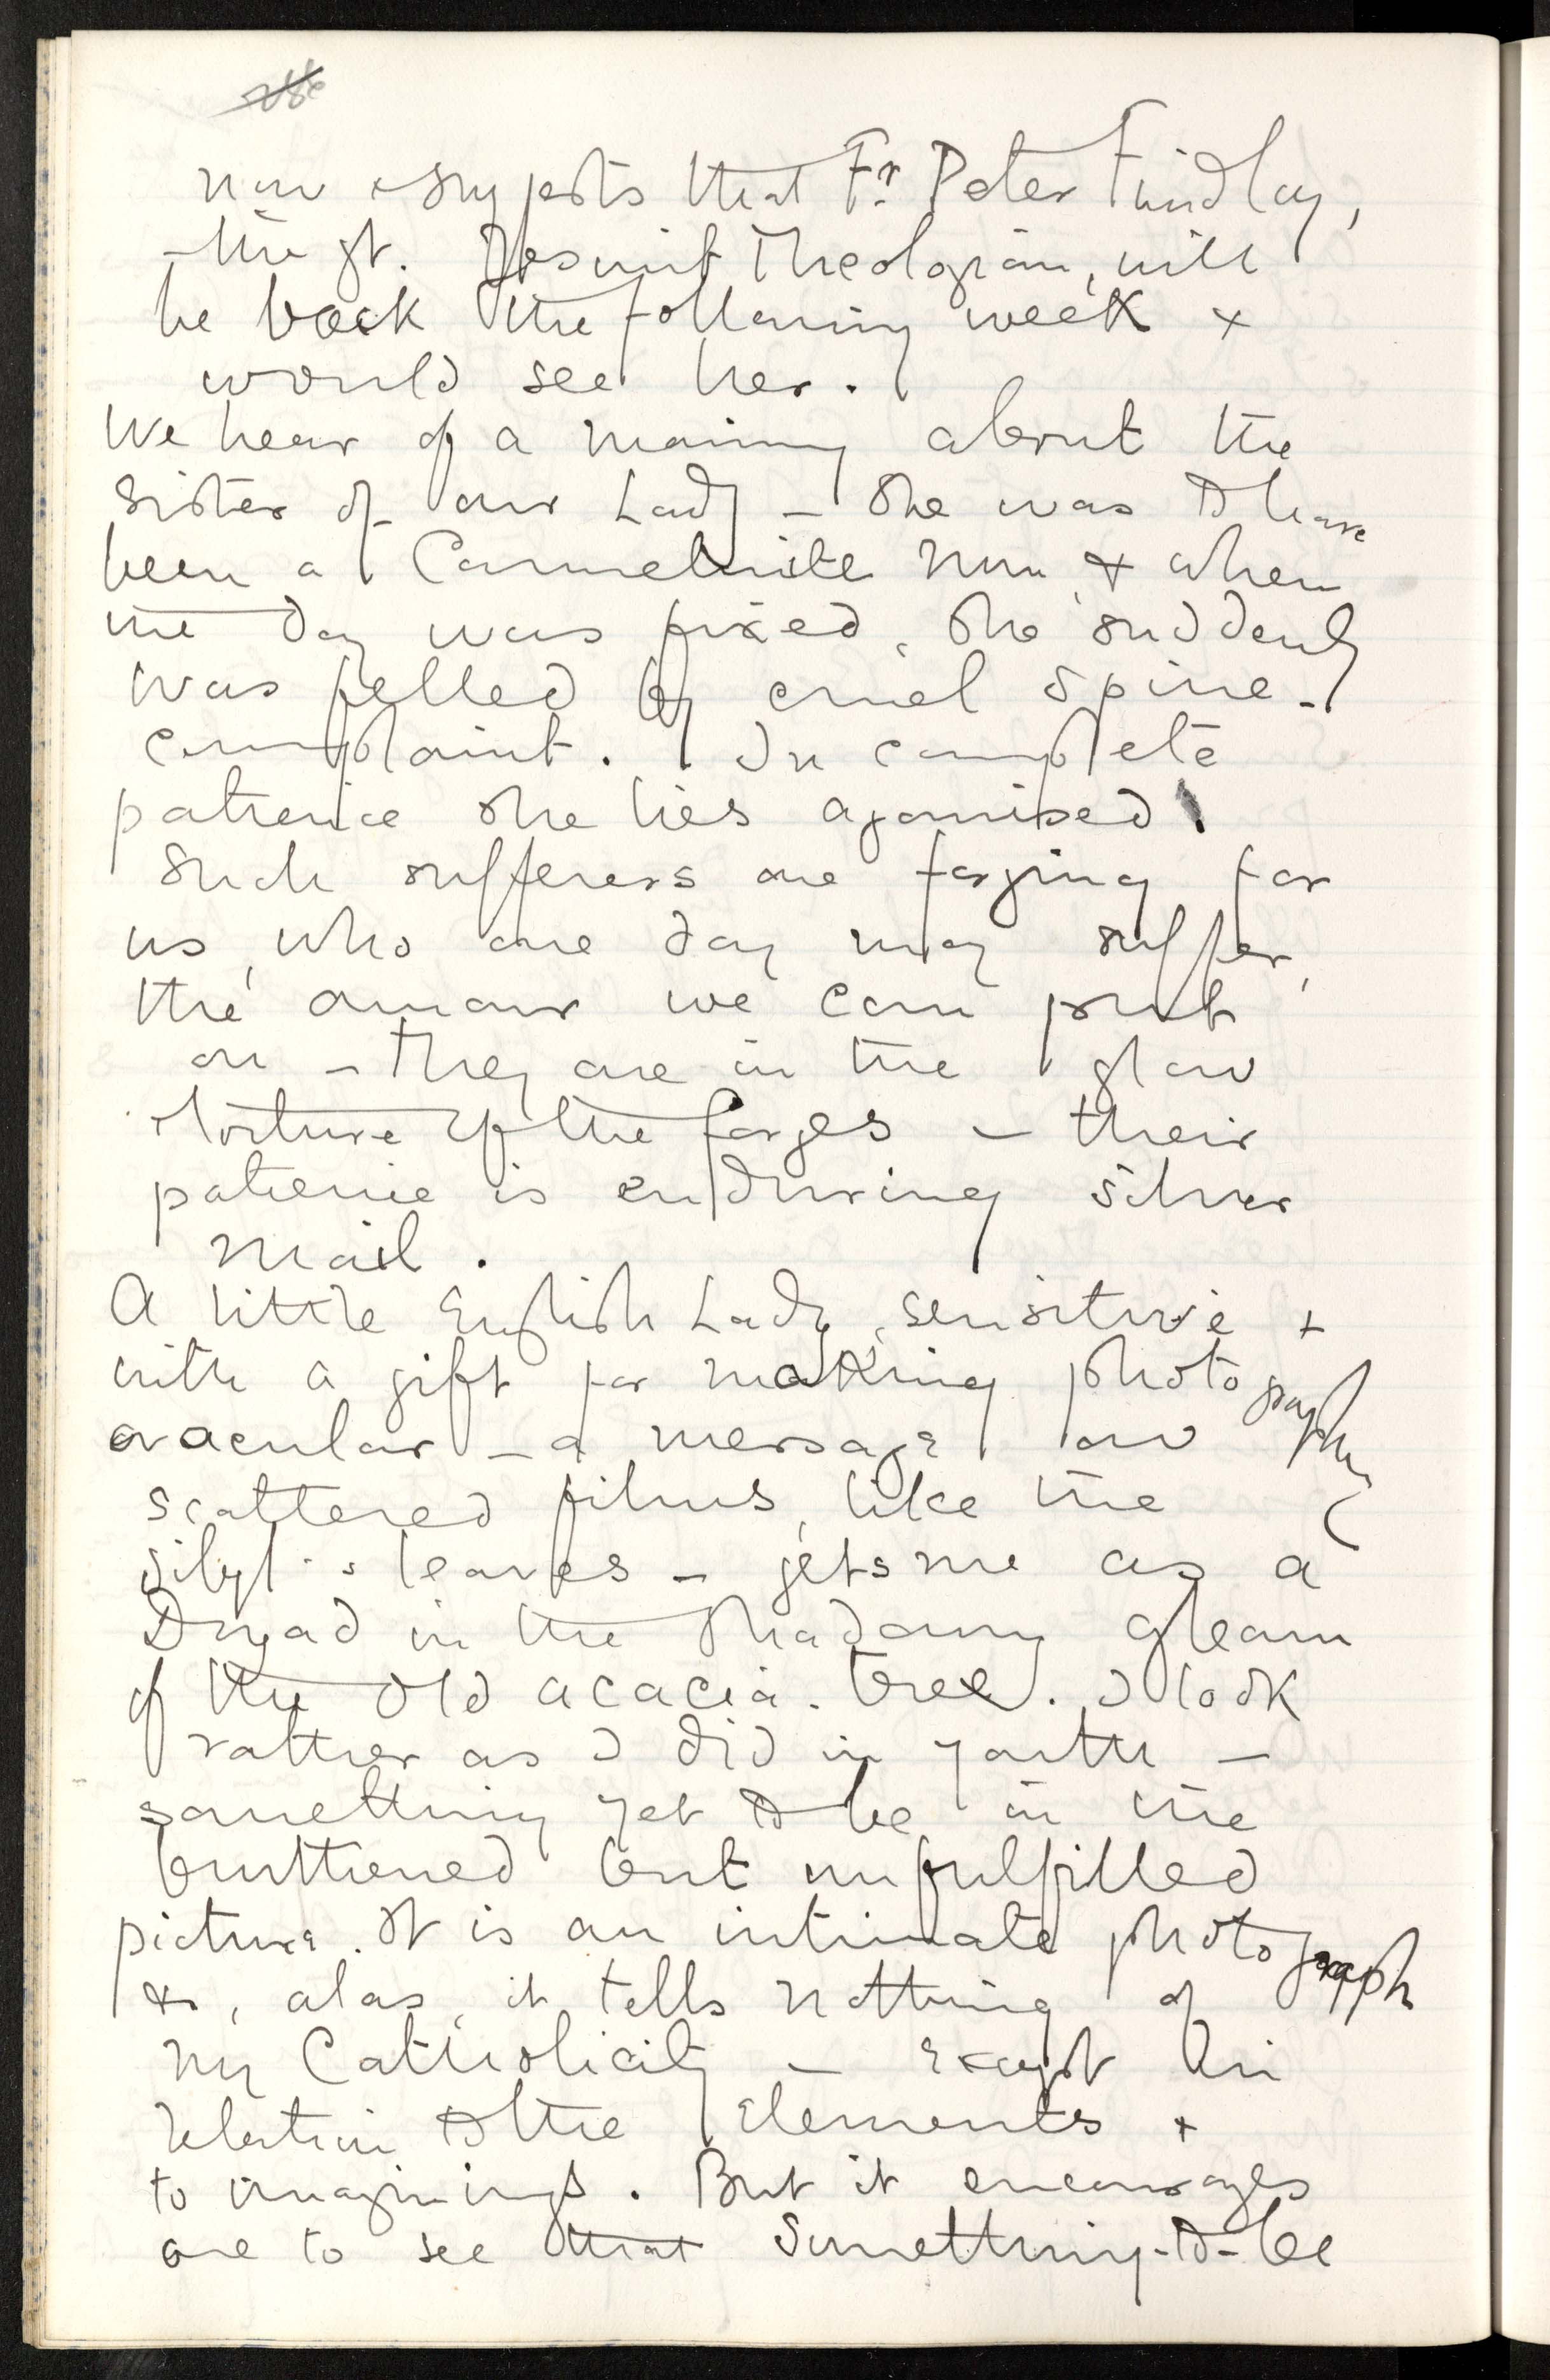 now & suggests that Fr. Peter Findlay,
the gt. Jesuit Theologian, will
be back the following week &
would see her.
We hear of a nursing about the
sister of our Lady – She was to have
been a Carmelnite Nun & when
the day was fixed, she suddenly
was felled by cruel spine-
complaint. In complete
patience she lies agonised.
Such sufferers are forging for
us, who one day may suffer,
the armour we can put
on – They are in the glow
torture of the forges – their
patience is enduring silver
mail.
A little English Lady, sensitive &
with a gift for making photography
oracular – a message on
scattered films, like the
sibyl's leaves – gets me as a
Dryad in the shadowy gleam
of the old acacia-tree. I look
rather as I did in youth –
something yet to be in the
buttoned but unfulfilled
picture. It is an intimate photograph
&, alas, it tells nothing of
my Catholicity – except in
relation to the Elements &
to imaginings. But it encourages
one to see that Something-to-be